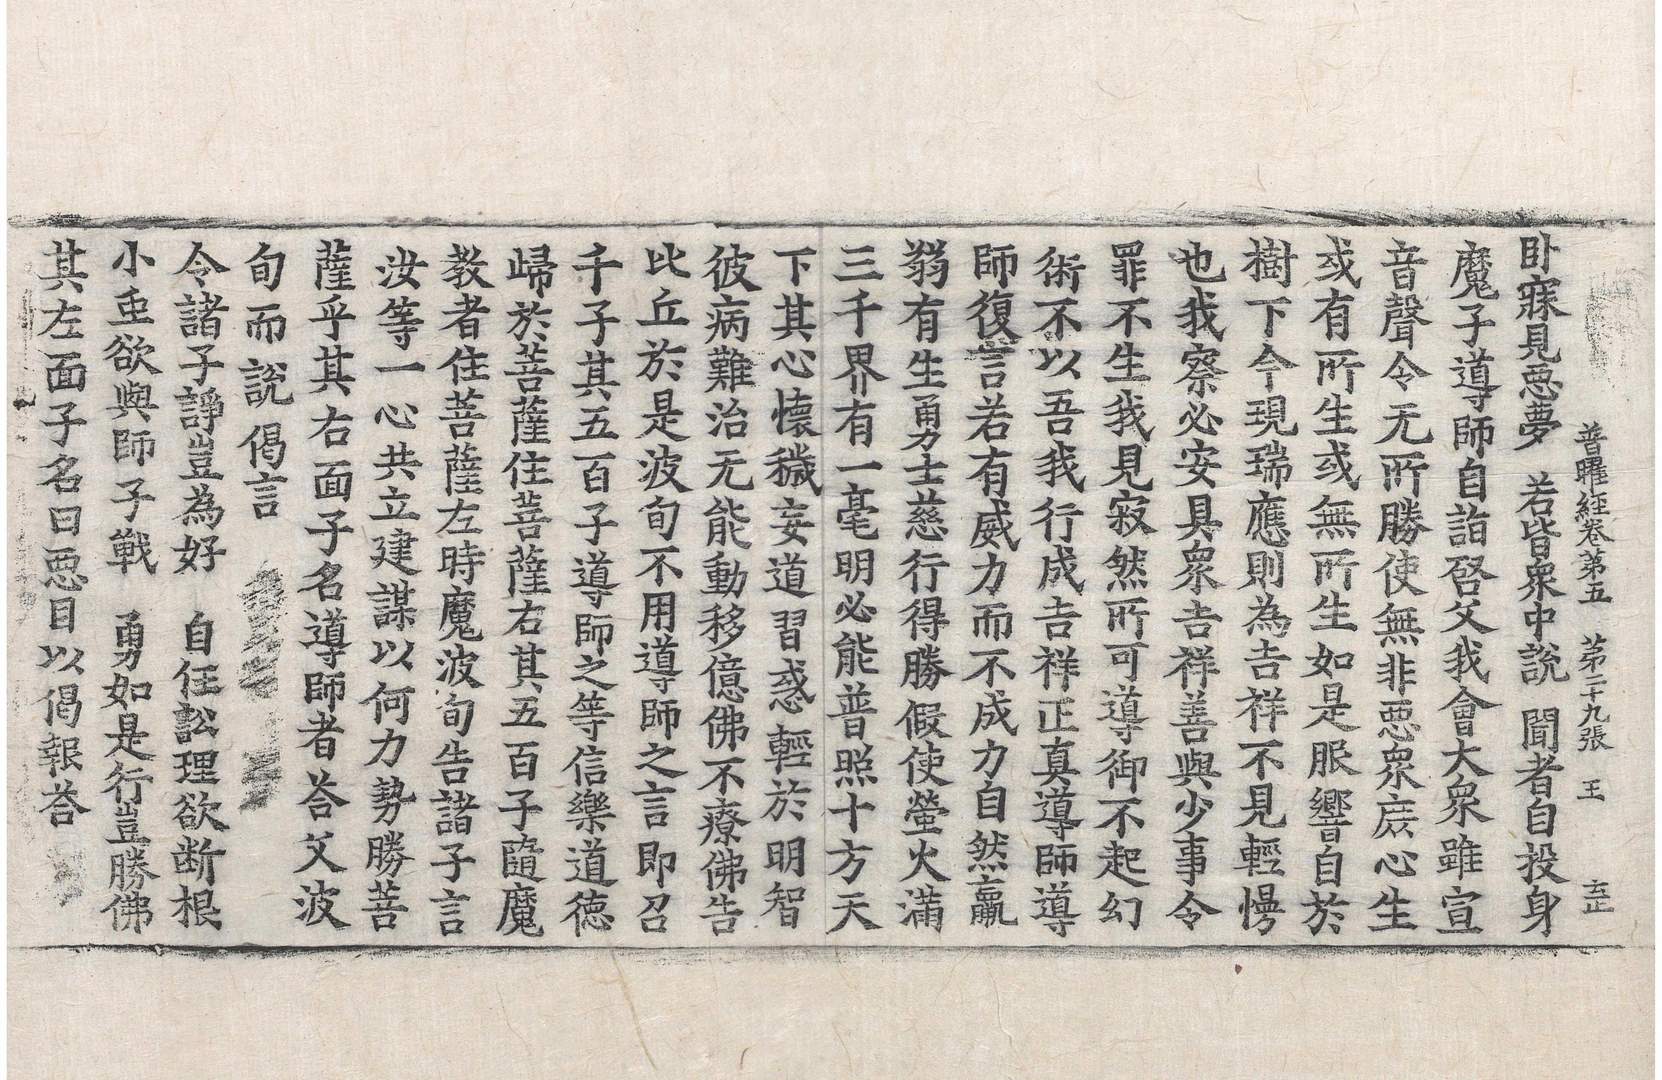 普曜經卷第五　第二十九張　王　玄正
卧寐見惡夢　若皆衆中說　聞者自投身
魔子導師自詣啓父我會大衆雖宣
音聲令无所勝使無非惡衆庶心生
或有所生或無所生如是服響自於
樹下今現瑞應則為吉祥不見輕慢
也我察必安具衆吉祥善與少事令
罪不生我見寂然所可導御不起幻
術不以吾我行成吉祥正真導師導
師復言若有威力而不成力自然羸
弱有生勇士慈行得勝假使螢火滿
三千界有一毫明必能普照十方天
下其心懷穢妄道習惑輕於明智
彼病難治无能動移億佛不療佛告
比丘於是波旬不用導師之言即召
千子其五百子導師之等信樂道德
歸於菩薩住菩薩右其五百子隨魔
教者住菩薩左時魔波旬告諸子言
汝等一心共立建謀以何力勢勝菩
薩乎其右面子名導師者荅父波
旬而說偈言
令諸子諍豈為好　自任訟理欲断根
小䖝欲與師子戰　勇如是行豈勝佛
其左面子名曰惡目以偈報荅